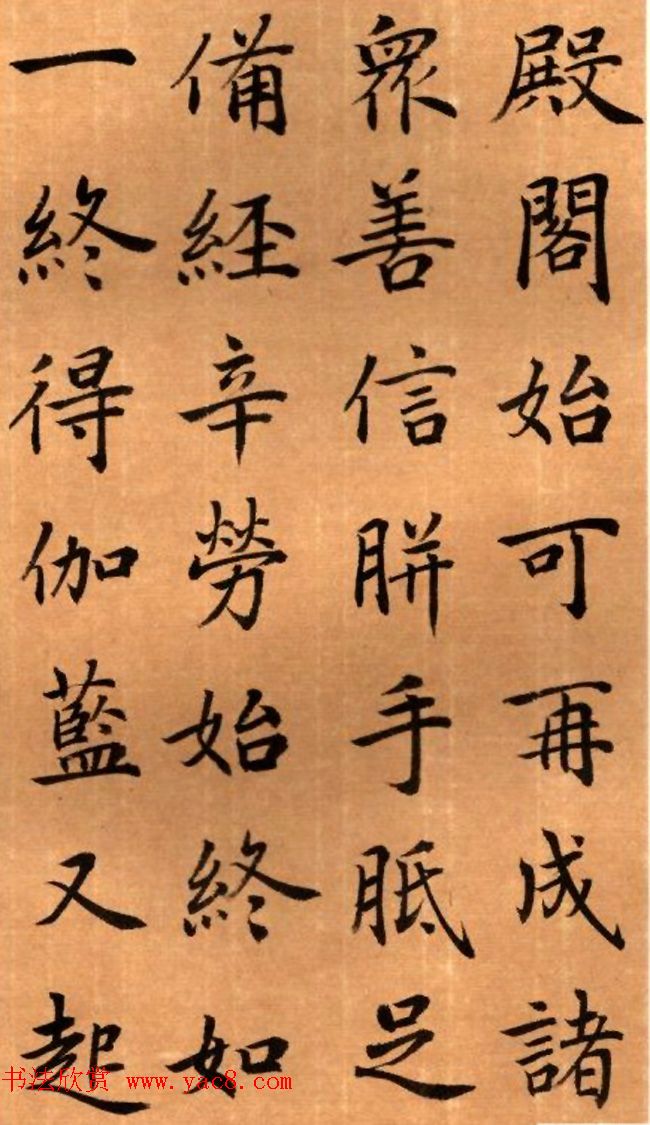 殿閣始可再成諸
眾善信胼手胝足
備經辛勞始終如
一終得伽藍又起
书法欣赏 www.yac8.com